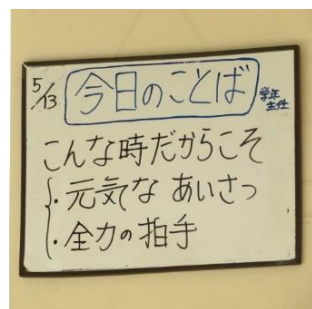 5/13 今日のことば 学年主任
こんな時だからこそ
・元気な あいさつ
・全力の拍手